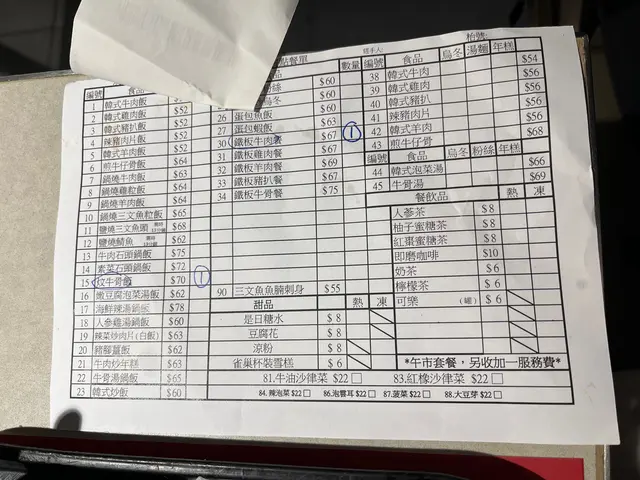 點餐單
經手人:
枱號:
編號 食品
1 韓式牛肉飯 $52
2 韓式雞肉飯 $52
3 韓式豬扒飯 $52
4 辣豬肉片飯 $52
5 韓式羊肉飯 $52
6 煎牛仔骨飯 $64
7 鍋燒牛肉飯 $60
8 鍋燒雞粒飯 $58
9 鍋燒羊肉飯 $60
10 鍋燒三文魚粒飯 $65
11 鹽燒三文魚頭 $68
12 鹽燒鯖魚 $62
13 牛肉石頭鍋飯 $75
14 素菜石頭鍋飯 $72
15 炆牛骨飯 $70 1
16 嫩豆腐泡菜湯飯 $62
17 海鮮辣湯鍋飯 $78
18 人參雞湯鍋飯 $60
19 辣菜炒肉片(白飯) $63
20 豬腳薑飯 $62
21 牛肉炒年糕 $63
22 牛骨湯鍋飯 $65
23 韓式炒飯 $60
品 數量
粉絲 $60
烏冬 $60
26 蛋包魚飯 $60
27 蛋包蝦飯 $63
30 鐵板牛肉餐 $67 1
31 鐵板雞肉餐 $67
32 鐵板羊肉餐 $69
33 鐵板豬扒餐 $67
34 鐵板牛骨餐 $75
90 三文魚魚腩刺身 $55
甜品 熱 凍
是日糖水 $8
豆腐花 $8
涼粉 $8
雀巢杯裝雪糕 $6
編號 食品 烏冬 湯麵 年糕
38 韓式牛肉 $54
39 韓式雞肉 $56
40 韓式豬扒 $56
41 辣豬肉片 $56
42 韓式羊肉 $56
43 煎牛仔骨 $68
編號 食品 烏冬 粉絲 年糕
44 韓式泡菜湯 $66
45 牛骨湯 $69
餐飲品 熱 凍
人參茶 $8
柚子蜜糖茶 $8
紅棗蜜糖茶 $8
即磨咖啡 $10
奶茶 $6
檸檬茶 $6
可樂 (罐) $6
*午市套餐，另收加一服務費*
81.牛油沙律菜 $22 83.紅橡沙律菜 $22
84.辣泡菜 $22 86.泡雲耳 $22 87.菠菜 $22 88.大豆芽 $22